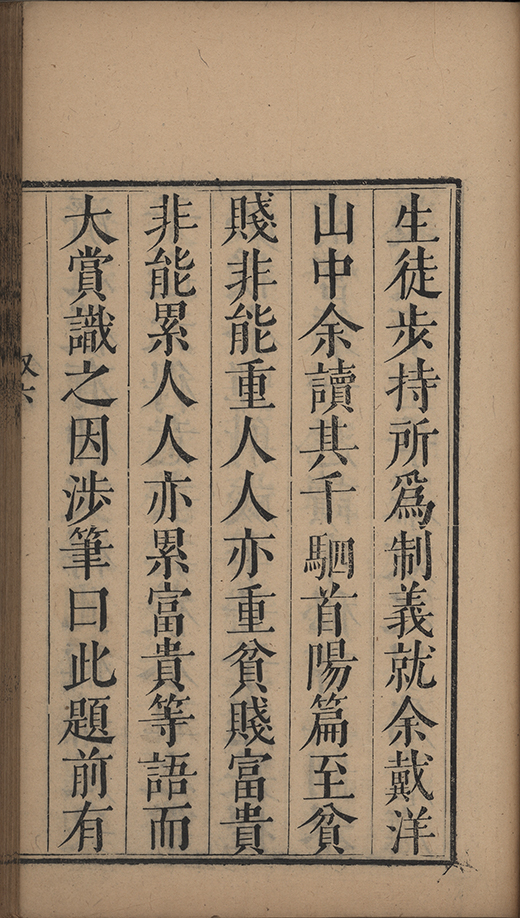 生徒步持所爲制義就余戴洋
山中余讀其千駟首陽篇至貧
賤非能重人人亦重貧賤富貴
非能累人人亦累富貴等語而
大賞識之因涉筆曰此題前有